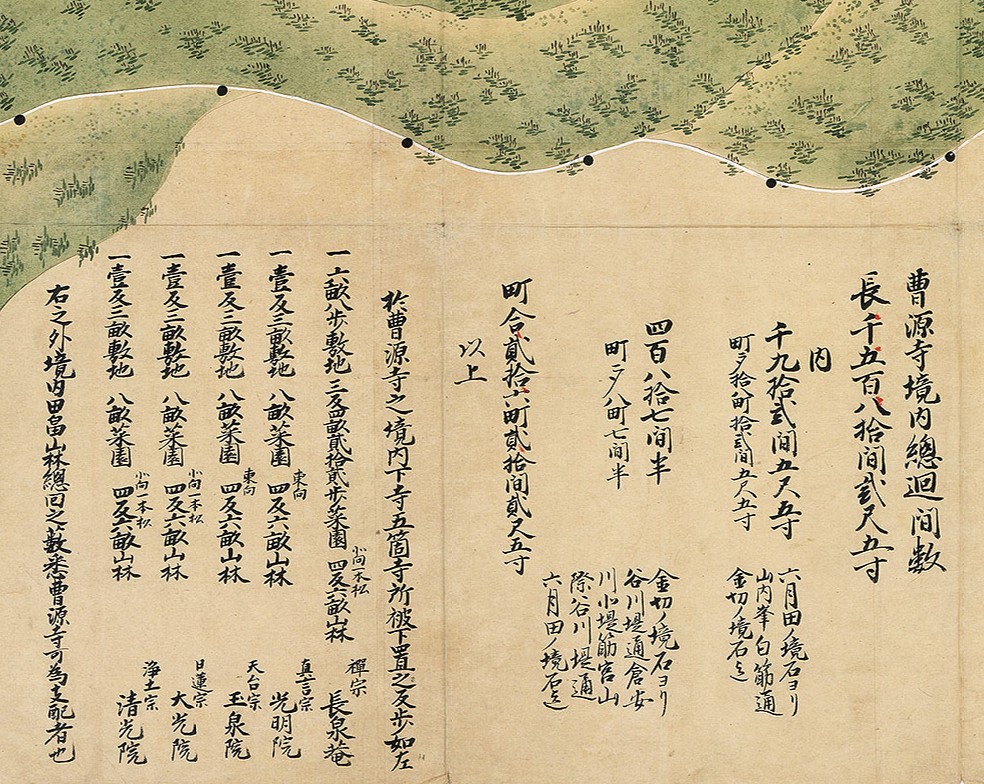 曹源寺境内總迴間數
長千五百八拾間貳尺五寸
内
千九拾貳間五尺五寸
町〆拾八町拾貳間五尺五寸
六月田ノ境石ヨリ
山内峯白筋通
金切ノ境石迄
四百八拾七間半
町〆八町七間半
金切ノ境石ヨリ
谷川堤通倉安
川小堤筋宮山
際谷川堤通
六月田ノ境石迄
町合貳拾六町貳拾間貳尺五寸
以上
於曹源寺之境内下寺五箇寺所被下置之反歩如左
一六畝八歩敷地 三反四畝貳拾貳歩菜園 北向一本松 四反六畝山林 禪宗 長泉菴
一壹反三畝敷地 八畝菜園 東向 四反六畝山林 真言宗 光明院
一壹反三畝敷地 八畝菜園 東向 四反六畝山林 天台宗 玉泉院
一壹反三畝敷地 八畝菜園 北向一本松 四反六畝山林 日蓮宗 大光院
一壹反三畝敷地 八畝菜園 北向一本松 四反六畝山林 浄土宗 清光院
右之外境内田畠山林總回之數悉曹源寺可為支配者也